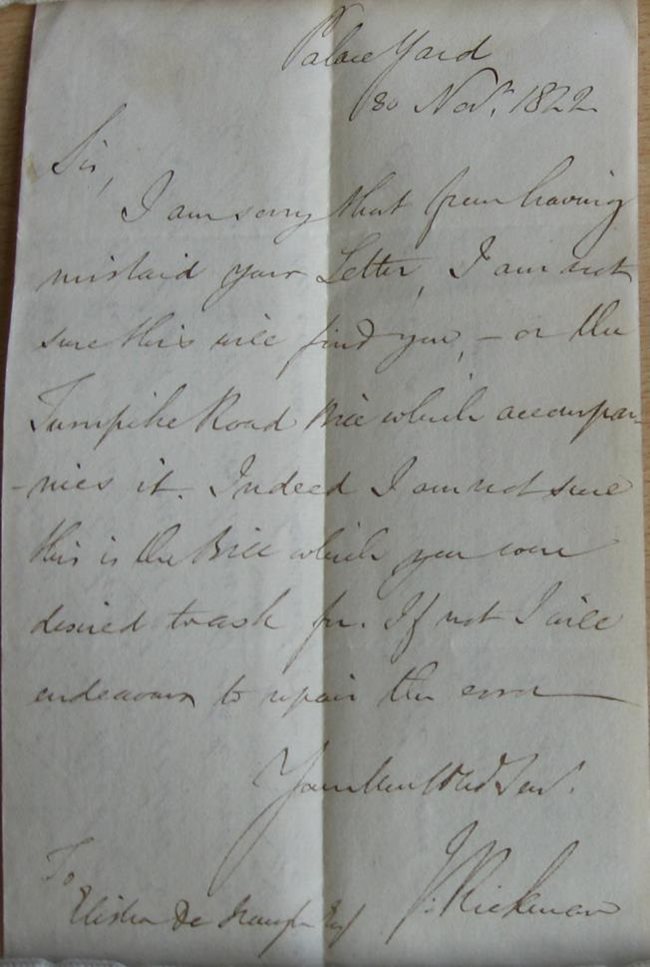 Palace Yard
30 Novr. 1822
Sir,
I am sorry that from having
mislaid your Letter, I am not
sure this will find you, – or the
Turnpike Road Bill which accompa-
-nies it. Indeed I am not sure
this is the Bill which you were
desired to ask for. If not I will
endeavour to repair the error
Your Obed Servt.
J: Rickman
To
Elisha De